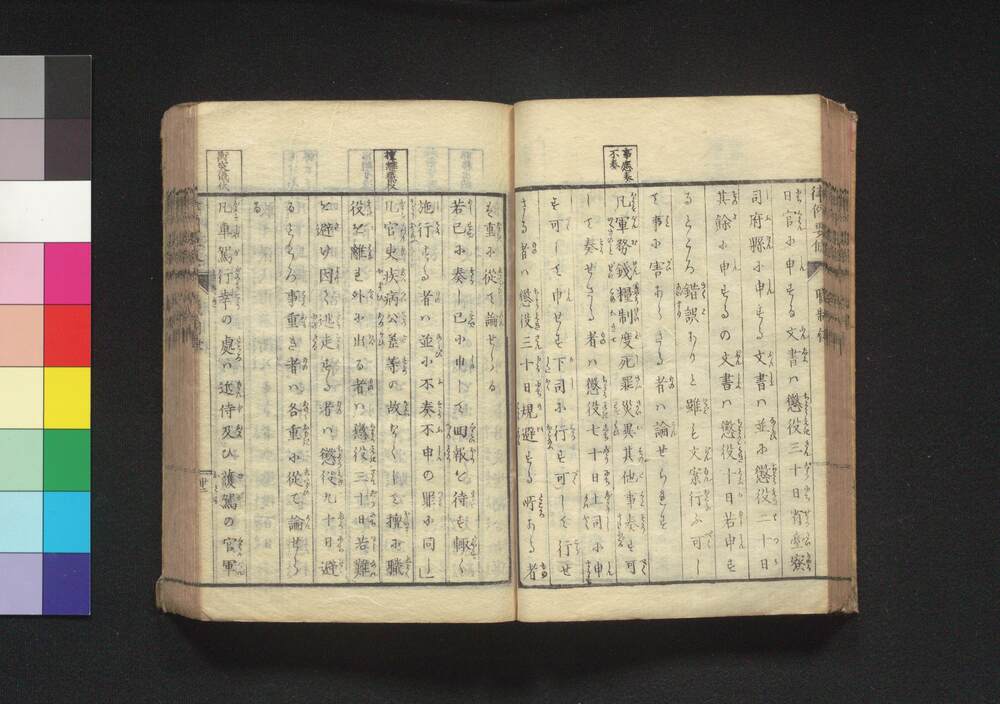 日官ニ申する文書ハ懲役三十日省寮察
司府縣ニ申する文書ハ並ニ懲役二十日
其餘ニ申するの文書ハ懲役十日若申す
るところ錯誤ありと雖も文案行ふ可し
て事ニ害あらさる者ハ論せらす
事應奏不奏
凡軍務錢糧制度死罪災異其他事奏す可
して奏せさる者ハ懲役七十日上司ニ申
す可して申せす下司ニ行す可して行せ
さる者ハ懲役三十日規避する所ある者
も重ニ從て論せらる
若已ニ奏し已ニ申して回報を待す輙く
施行する者ハ並ニ不奏不申の罪ニ同し
擅離職役
凡官吏疾病公差等の故なく上て擅ニ職
役を離れ外ニ出る者ハ懲役三十日若難
を避け因て逃走する者ハ懲役九十日避
るところ事重き者ハ各重ニ從て論せら
る
衝突儀仗
凡車駕行幸の處ハ近侍及ひ護駕の官軍